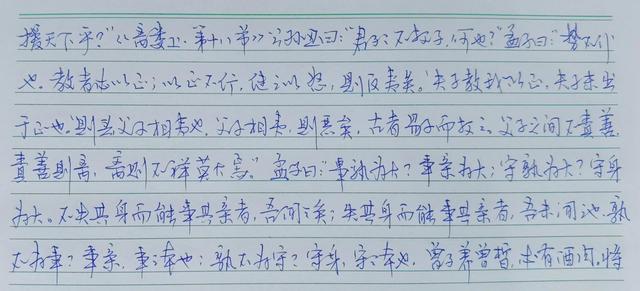 援天下乎？"《离娄上·第十八节》公孙丑曰："君子之不教子，何也？"孟子曰："势不行
也。教者必以正；以正不行，继之以怒，则反夷矣。'夫子教我以正，夫子未出
于正也。'则是父子相夷也。父子相夷，则恶矣，古者易子而教之，父子之间不责善，
责善则离，离则不祥莫大焉。"孟子曰："事孰为大？事亲为大；守孰为大？守身
为大。不失其身而能事其亲者，吾闻之矣；失其身而能事其亲者，吾未闻也。孰
不为事？事亲，事之本也；孰不为守？守身，守之本也。曾子养曾皙，必有酒肉。将